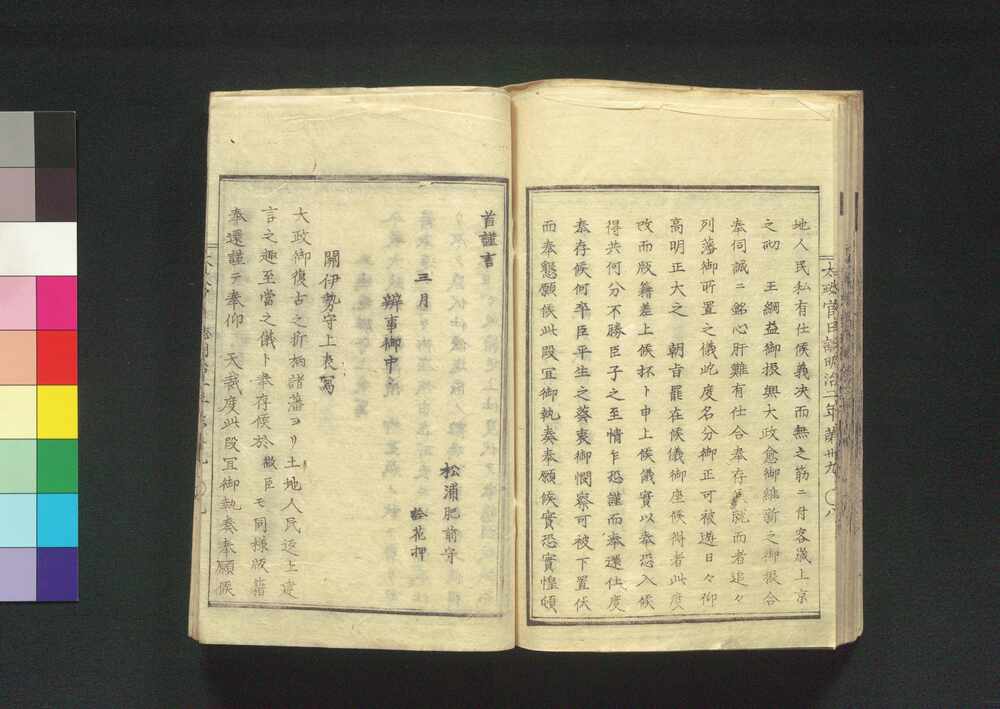 地人民私有仕候義决而無之筋ニ付客歳上京
之砌　王綱益御振興大政愈御維新之御振合
奉伺誠ニ銘心肝難有仕合奉存候就而者追々
列藩御所置之儀屹度名分御正可被遊日々仰
高明正大之　朝旨罷在候儀御座候得者此度
改而版籍差上候抔ト申上候儀實以奉恐入候
得共何分不勝臣子之至情乍恐謹而奉還仕度
奉存候何卒臣平生之葵衷御憫察可被下置伏
而奉懇願候此段宜御執奏奉願候實恐實惶頓
太政官日誌明治二年第卅九　〇八
首謹言
三月　松浦肥前守
詮花押
辨事御中
關伊勢守上表寫
大政御復古之折柄諸藩ヨリ土地人民返上建
言之趣至當之儀ト奉存候於微臣モ同様版籍
奉還謹テ奉仰　天裁度此段宜御執奏奉願候